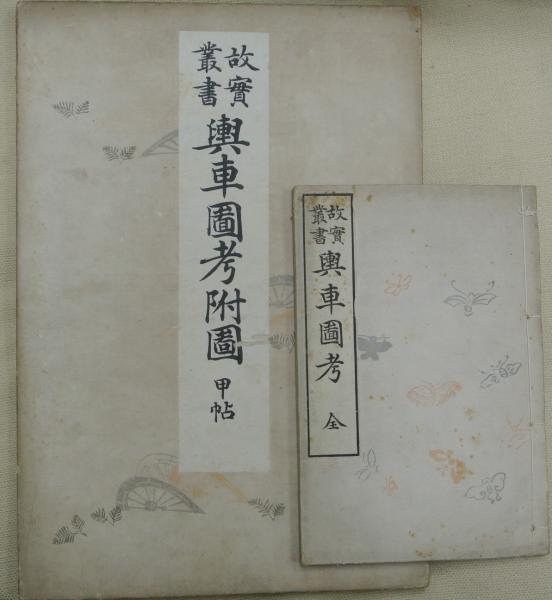 故實
叢書
輿車圖考附圖
甲帖
故實
叢書
輿車圖考
全